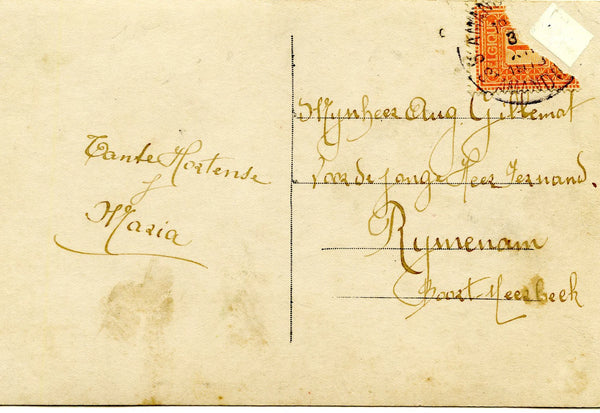 Tante Hortense
Maria
Mynheer Aug Gillemot
Voor de jonge Heer Fernand.
Rymenam
Poort Meerbeek